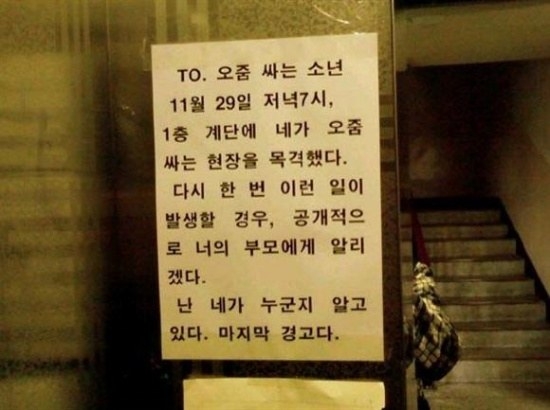 TO. 오줌 싸는 소년
11월 29일 저녁7시,
1층 계단에 네가 오줌
싸는 현장을 목격했다.
다시 한 번 이런 일이
발생할 경우, 공개적으
로 너의 부모에게 알리
겠다.
난 네가 누군지 알고
있다. 마지막 경고다.